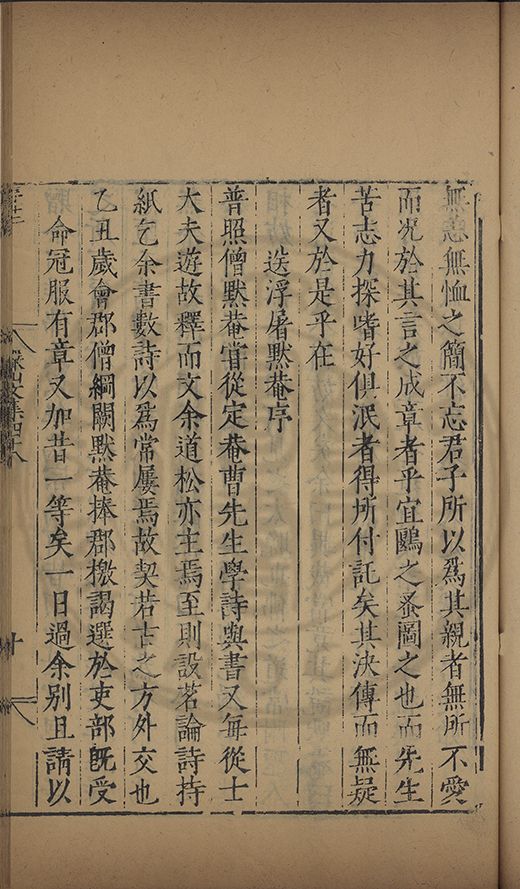 無恙無恤之簡不忘君子所以爲其親者無所不愛
而况於其言之成章者乎宜鷗之蚤圖之也而先生
苦志力探嗜好俱泯者得所付託矣其決傳而無疑
者又於是乎在
送浮屠默菴序
普照僧默菴嘗從定菴曹先生學詩與書又每從士
大夫遊故釋而文余道松亦主焉至則設茗論詩持
紙乞余書數詩以爲常屢焉故契若古之方外交也
乙丑歲會郡僧綱闕默菴捧郡檄謁選於吏部旣受
命冠服有章又加昔一等矣一日過余别且請以
十